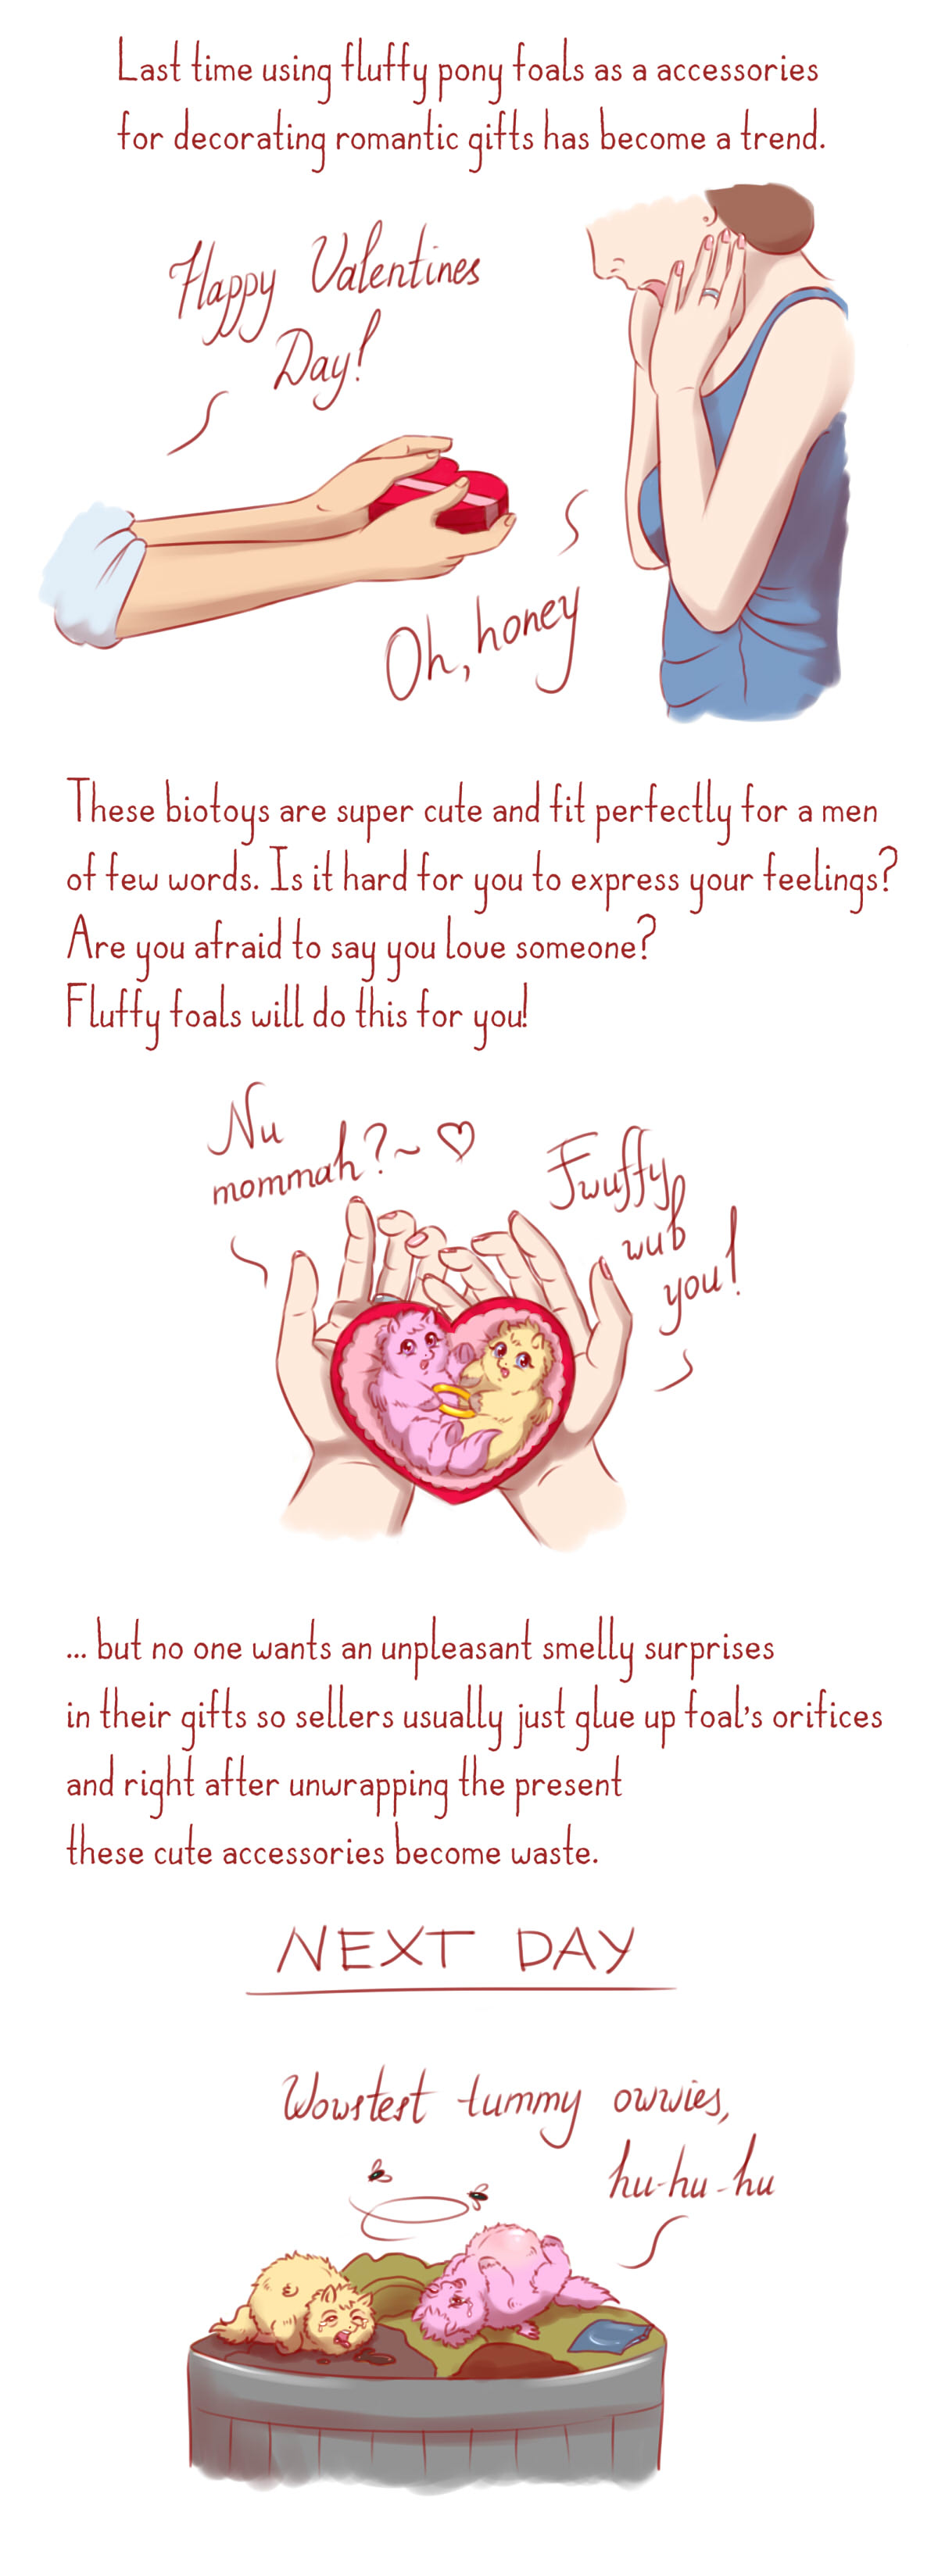 Last time using fluffy pony foals as a accessories
for decorating romantic gifts has become a trend.
Happy Valentines
Day!
Oh, honey
These biotoys are super cute and fit perfectly for a men
of few words. Is it hard for you to express your feelings?
Are you afraid to say you love someone?
Fluffy foals will do this for you!
Nu
mommah?~ ♡
Fwuffy
wub
you!
... but no one wants an unpleasant smelly surprises
in their gifts so sellers usually just glue up foal's orifices
and right after unwrapping the present
these cute accessories become waste.
NEXT DAY
Wowstest tummy owwies,
hu-hu-hu